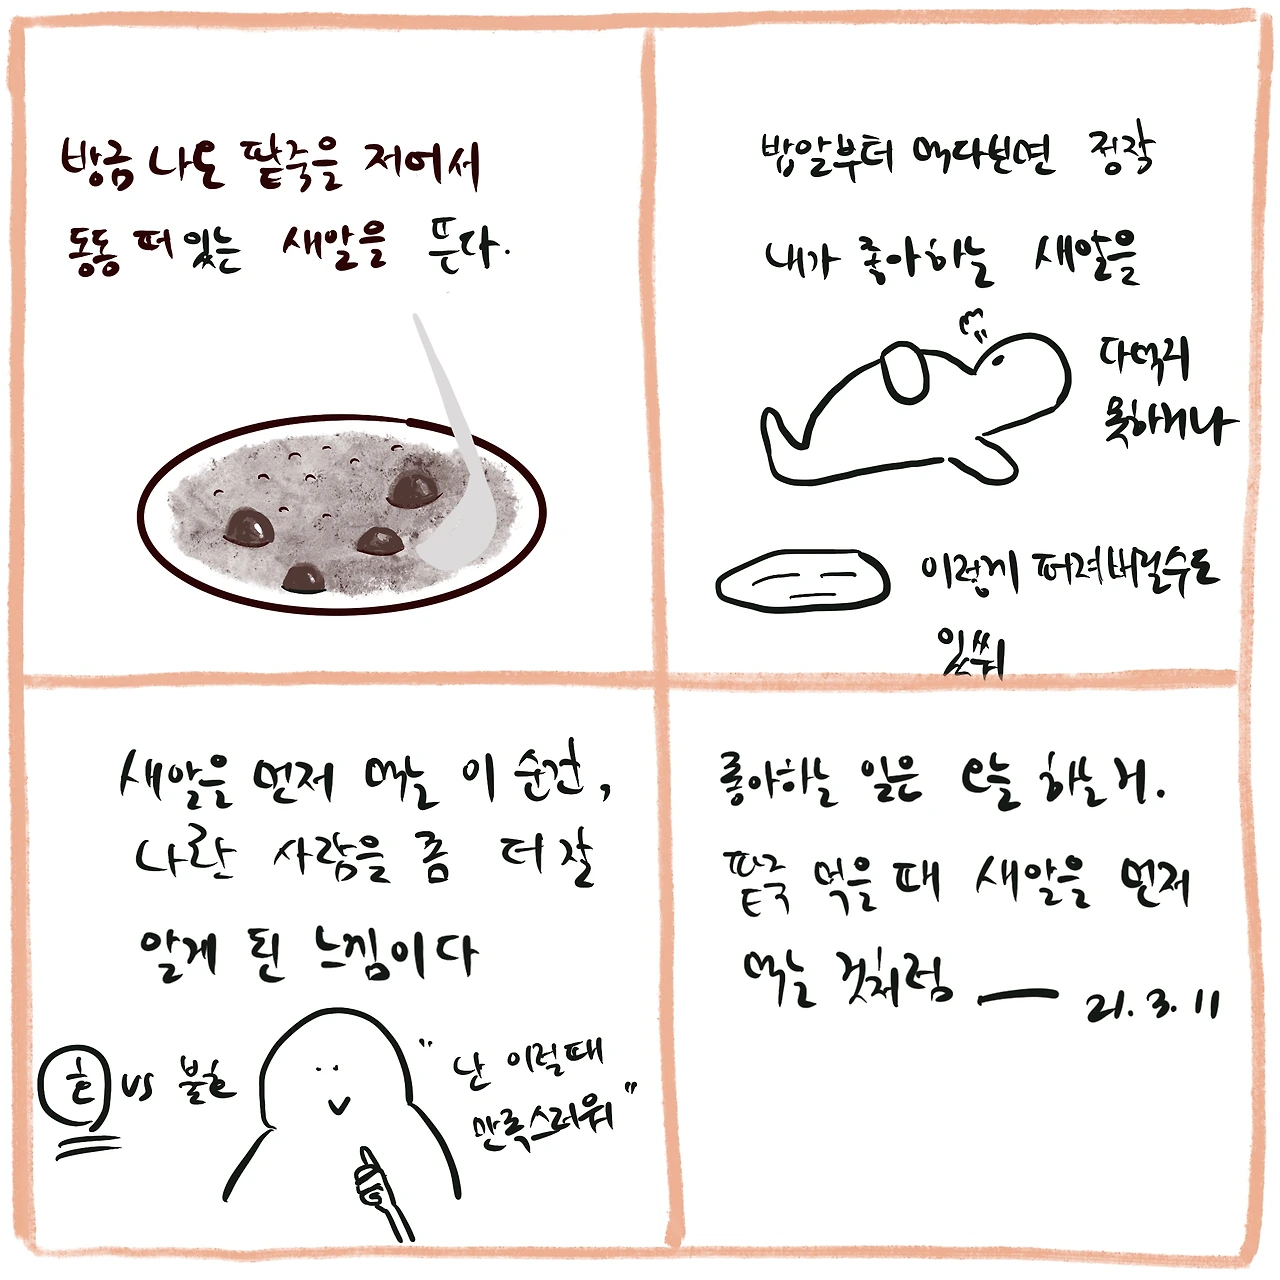 방금 나온 팥죽을 저어서
동동 떠 있는 새알을 뜬다.
밥알부터 먹다보면 정작
내가 좋아하는 새알을
다먹지
못하거나
이렇게 퍼져버릴수도
있쒀
새알을 먼저 먹는 이 순간,
나란 사람을 좀 더 잘
알게 된 느낌이다
호 vs 불호
"난 이럴때
만족스러워"
좋아하는 일은 오늘 하는거.
팥죽 먹을 때 새알을 먼저
먹는 것처럼 — 21. 3. 11